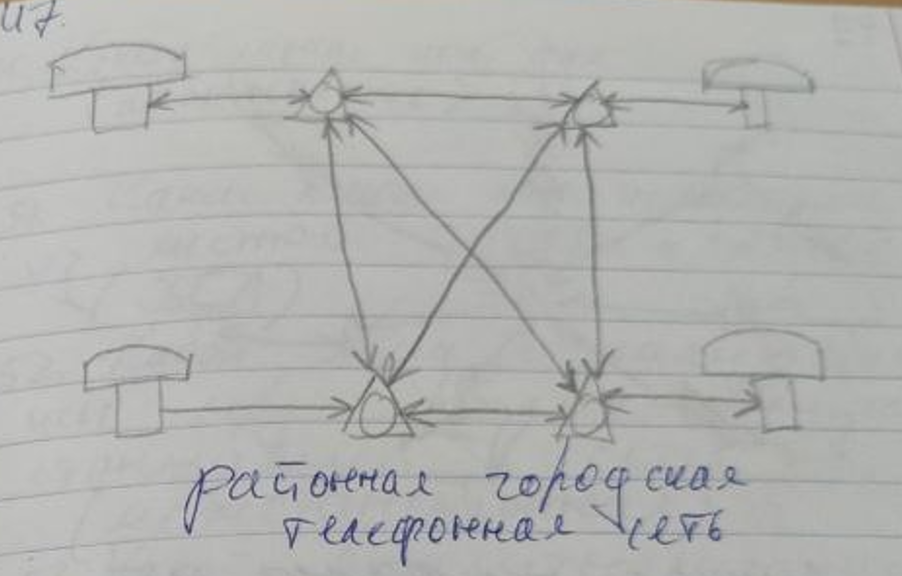 районная городская
телефонная сеть